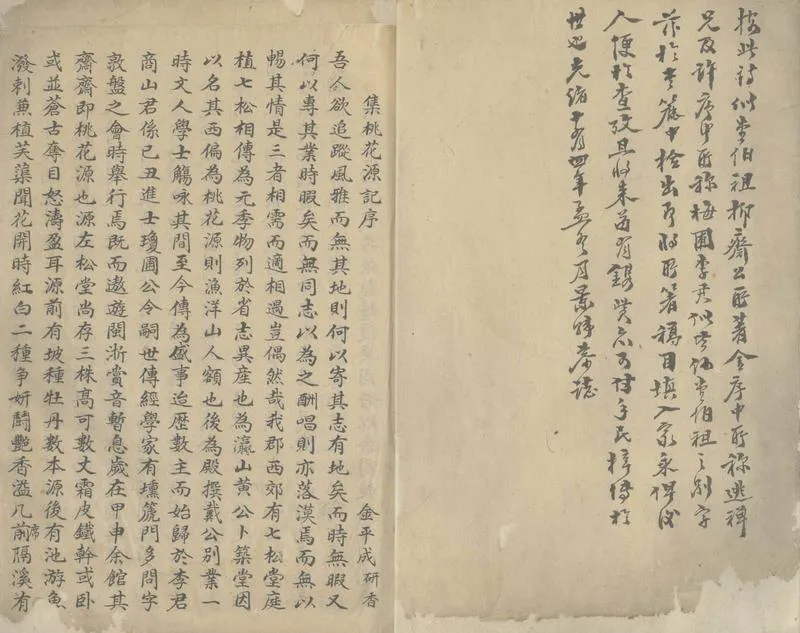 按此詩似堂伯祖柳齋公所著今序中所称
兄及許序中所称梅圃李君似堂伯祖之別字
茲於書簏中檢出所著稿目填入家乘俾後
人便於查攷且將來有貲亦可付手民梓傳於
世也光緒十有四年孟冬月誌
集桃花源記序
金平成研香
吾人欲追蹤風雅而無其地則何以寄其志有地矣而時無暇又
何以專其業時暇矣而無同志以為之酬唱則亦落漠焉而無以
暢其情是三者相需而適相遇豈偶然哉我郡西郊有七松堂庭
植七松相傳為元季物列於省志異産也為瀛山黄公卜築堂因
以名其西偏為桃花源則漁洋山人額也後為殿撰戴公別業一
時文人學士觴咏其間至今傳為盛事迨歷數主而始歸於李君
商山君係己丑進士瓊圃公令嗣世傳經學家有壎箎門多問字
敦盤之會時舉行焉既而遨遊閩浙賞音暫息歲在甲申余館其
齋齋即桃花源也源左松堂尚存三株高可數丈霜皮鐵幹或卧
或並蒼古奪目怒濤盈耳源前有坡種牡丹数本源後有池游魚
潑刺兼植芙蕖聞花開時紅白二種争妍鬬艷香溢几席前隔溪有